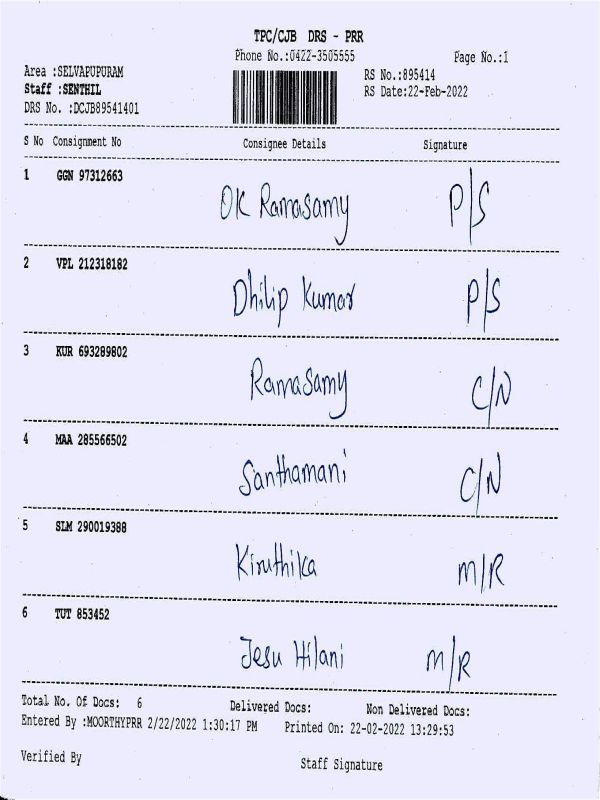 TPC/CJB DRS - PRR
Phone No.:0422-3505555 Page No.:1
Area :SELVAPUPURAM RS No.:895414
Staff :SENTHIL RS Date:22-Feb-2022
DRS No. :DCJB89541401
S No Consignment No Consignee Details Signature
1 GGN 97312663 OK Ramasamy P/S
2 VPL 212318182 Dhilip Kumar P/S
3 KUR 693289802 Ramasamy C/N
4 MAA 285566502 Santhamani C/N
5 SLM 290019388 Kiruthika M/R
6 TUT 853452 Jesu Hilani M/R
Total No. Of Docs: 6 Delivered Docs: Non Delivered Docs:
Entered By :MOORTHYPRR 2/22/2022 1:30:17 PM Printed On: 22-02-2022 13:29:53
Verified By Staff Signature